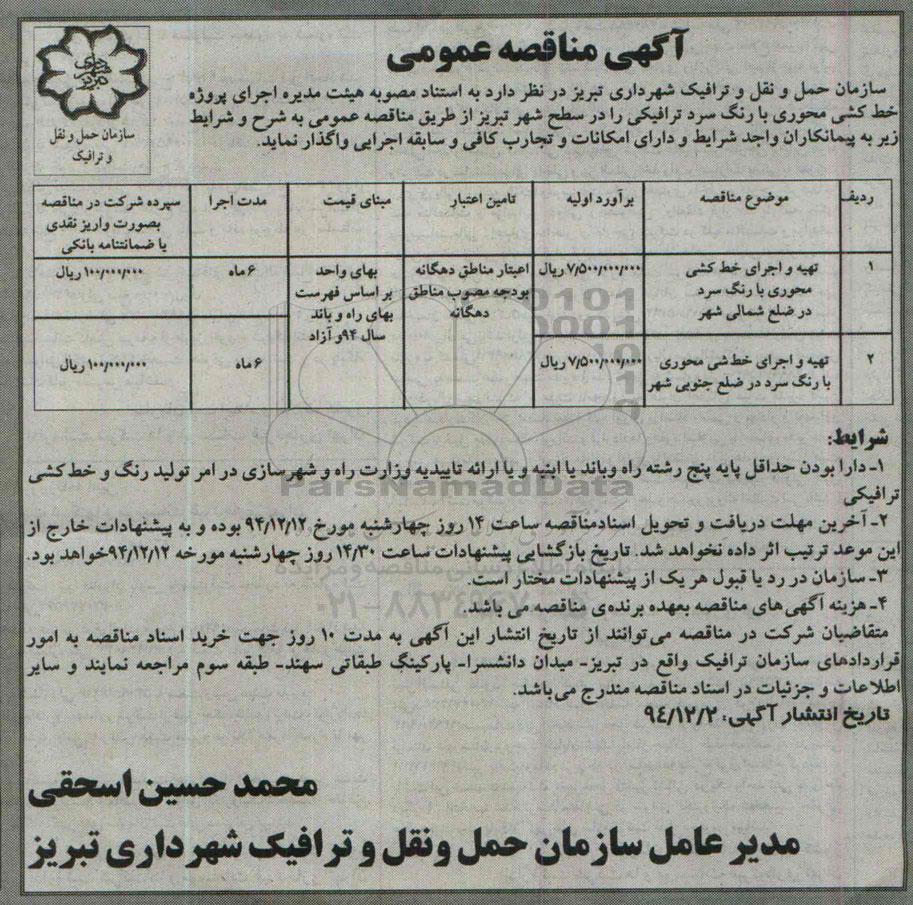 آگهی مناقصه عمومی
شهرداری تبریز
سازمان حمل و نقل
و ترافیک
سازمان حمل و نقل و ترافیک شهرداری تبریز در نظر دارد به استناد مصوبه هیئت مدیره اجرای پروژه
خط کشی محوری با رنگ سرد ترافیکی را در سطح شهر تبریز از طریق مناقصه عمومی به شرح و شرایط
زیر به پیمانکاران واجد شرایط و دارای امکانات و تجارب کافی و سابقه اجرایی واگذار نماید.
ردیف | موضوع مناقصه | برآورد اولیه | تامین اعتبار | مبنای قیمت | مدت اجرا | سپرده شرکت در مناقصه
بصورت واریز نقدی
یا ضمانتنامه بانکی
۱ | تهیه و اجرای خط کشی | ۷/۵۰۰/۰۰۰/۰۰۰ ریال | اعتبار مناطق دهگانه | بهای واحد | ۶ ماه | ۱۰۰/۰۰۰/۰۰۰ ریال
محوری با رنگ سرد | بودجه مصوب مناطق | بر اساس فهرست
در ضلع شمالی شهر | دهگانه | بهای راه و باند
سال ۹۴ و آزاد
۲ | تهیه و اجرای خط شی محوری | ۷/۵۰۰/۰۰۰/۰۰۰ ریال | ۶ ماه | ۱۰۰/۰۰۰/۰۰۰ ریال
با رنگ سرد در ضلع جنوبی شهر
شرایط:
۱- دارا بودن حداقل پایه پنج رشته راه وباند یا ابنیه و یا ارائه تاییدیه وزارت راه و شهرسازی در امر تولید رنگ و خط کشی
ترافیکی
۲- آخرین مهلت دریافت و تحویل اسنادمناقصه ساعت ۱۴ روز چهارشنبه مورخ ۹۴/۱۲/۱۲ بوده و به پیشنهادات خارج از
این موعد ترتیب اثر داده نخواهد شد. تاریخ بازگشایی پیشنهادات ساعت ۱۴/۳۰ روز چهارشنبه مورخه ۹۴/۱۲/۱۲خواهد بود.
۳- سازمان در رد یا قبول هر یک از پیشنهادات مختار است.
۴- هزینه آگهی های مناقصه بعهده برنده‌ی مناقصه می باشد.
متقاضیان شرکت در مناقصه می‌توانند از تاریخ انتشار این آگهی به مدت ۱۰ روز جهت خرید اسناد مناقصه به امور
قراردادهای سازمان ترافیک واقع در تبریز- میدان دانشسرا- پارکینگ طبقاتی سهند- طبقه سوم مراجعه نمایند و سایر
اطلاعات و جزئیات در اسناد مناقصه مندرج می‌باشد.
تاریخ انتشار آگهی: ۹٤/۱۲/۲
محمد حسین اسحقی
مدیر عامل سازمان حمل ونقل و ترافیک شهرداری تبریز
ParsNamadData
۰۲۱-۸۸۳۴۹۶۷۰